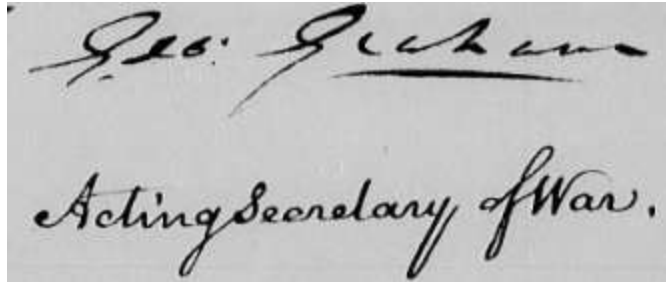 Geo: Graham
Acting Secretary of War.